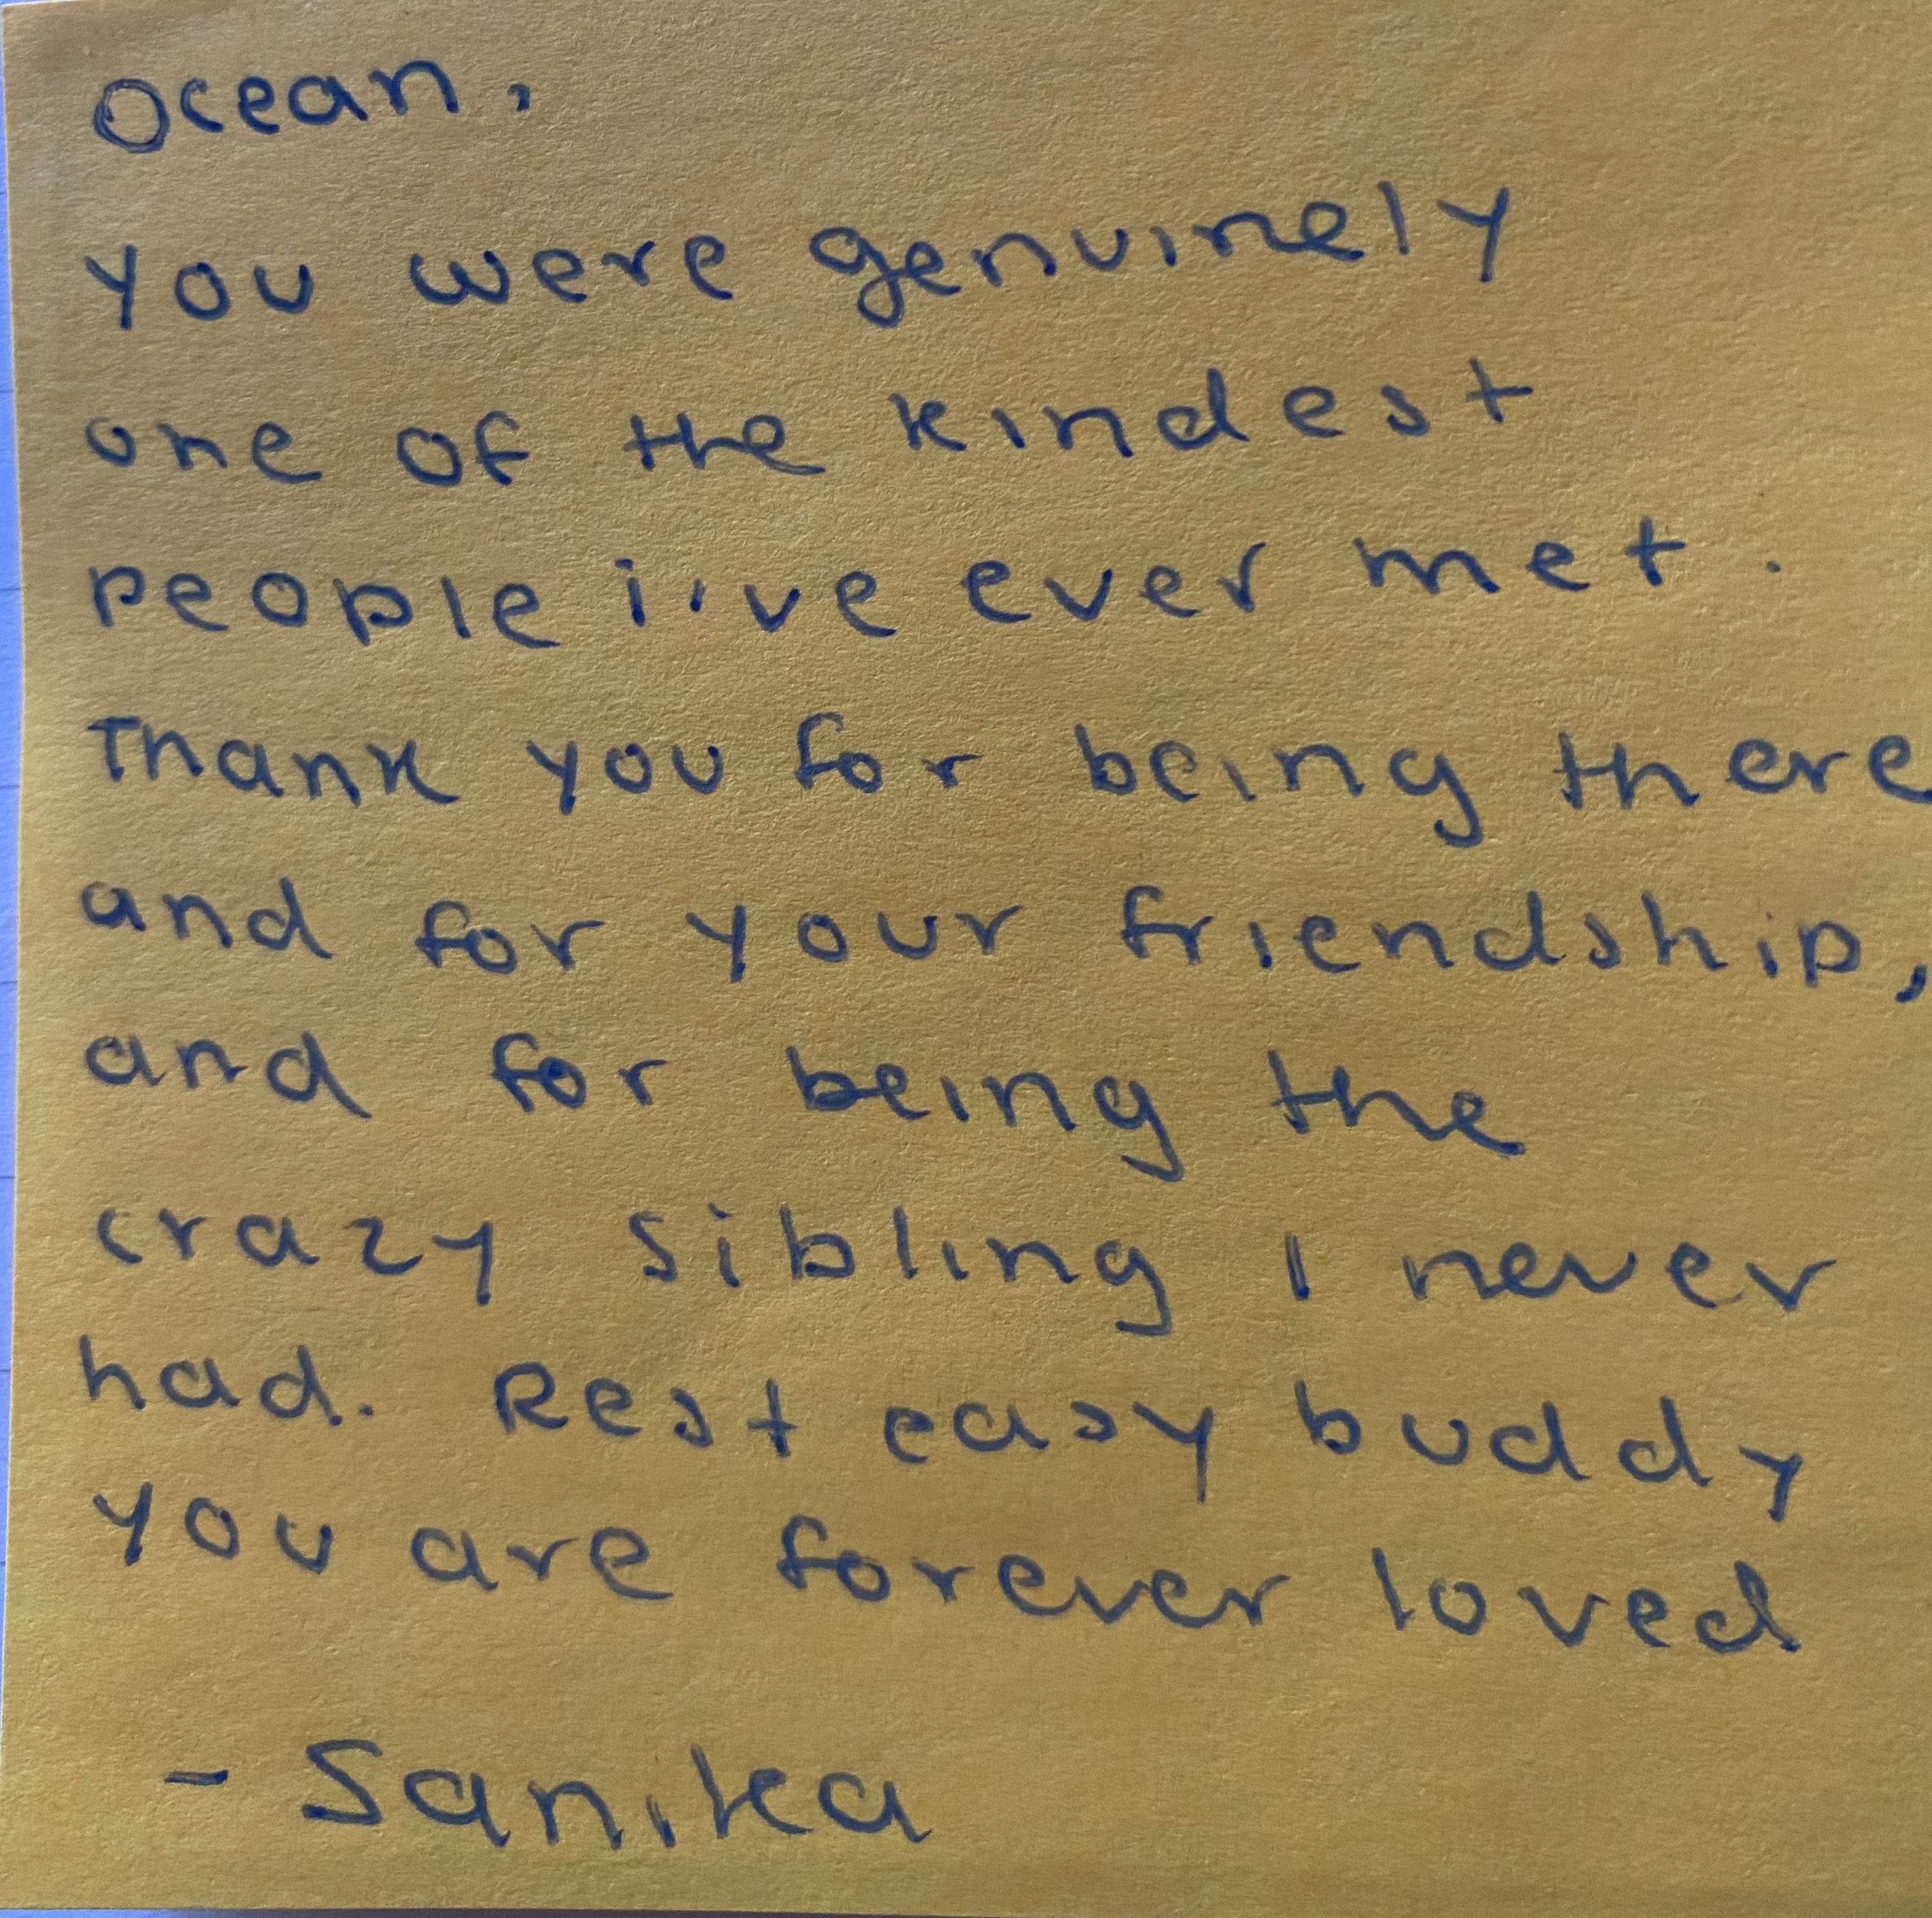 Ocean,
you were genuinely
one of the kindest
people i've ever met.
Thank you for being there
and for your friendship,
and for being the
crazy sibling I never
had. Rest easy buddy
you are forever loved
- Sanika